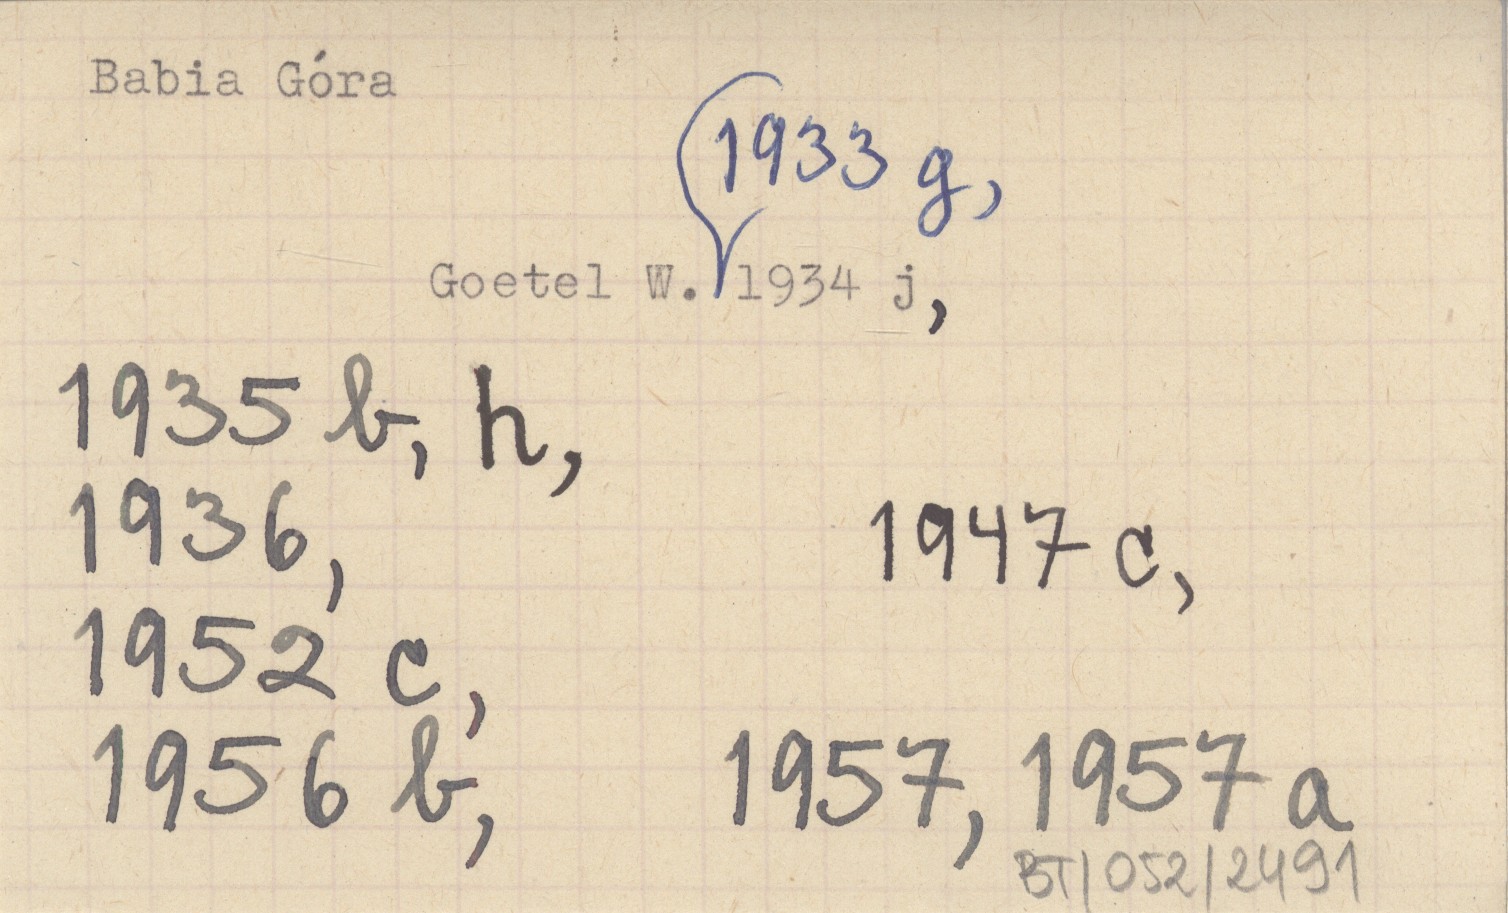 Babia Góra
1933 g,
Goetel W. 1934 j,
1935 b, h,
1936, 1947 c,
1952 c,
1956 b, 1957, 1957 a
BT/052/2491